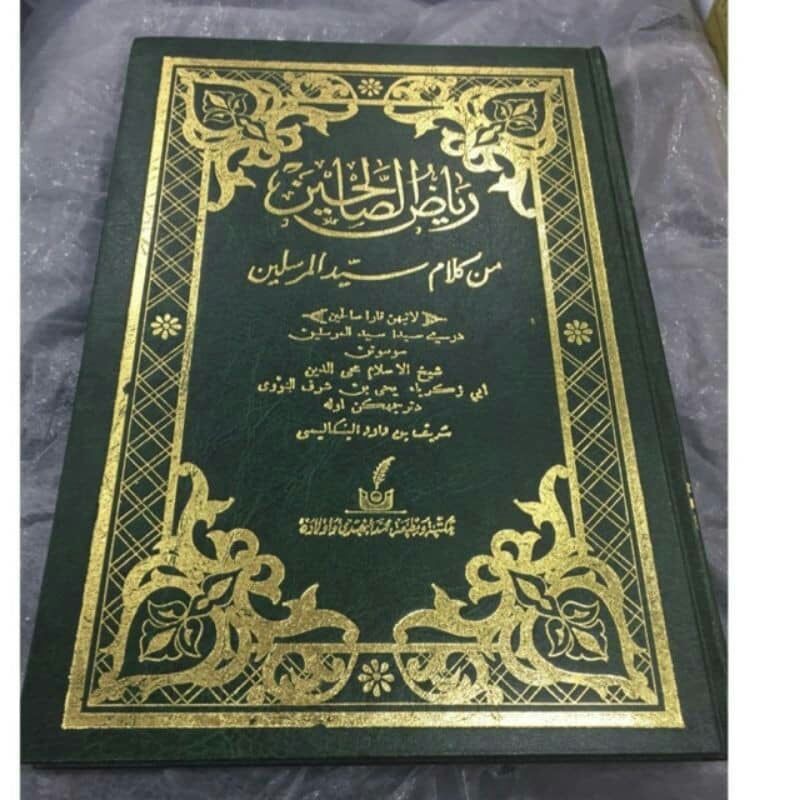 رياض الصالحين
من كلام سيد المرسلين
﴿لاتيهن فارا صالحين﴾
دري سبدا سيد المرسلين
سوسونن
شيخ الاسلام محي الدين
ابي زكرياء يحيى بن شرف النووى
دترجمهكن اوله
شريف بن داود
مكتبة ومطبعة محمد النهدي واولاده